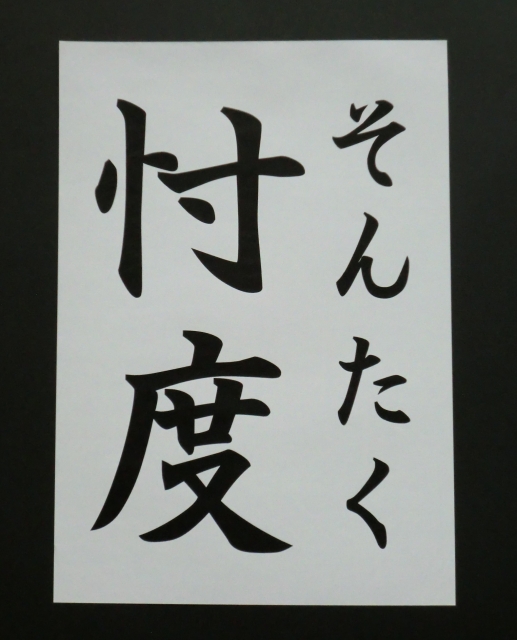 そんたく
忖度